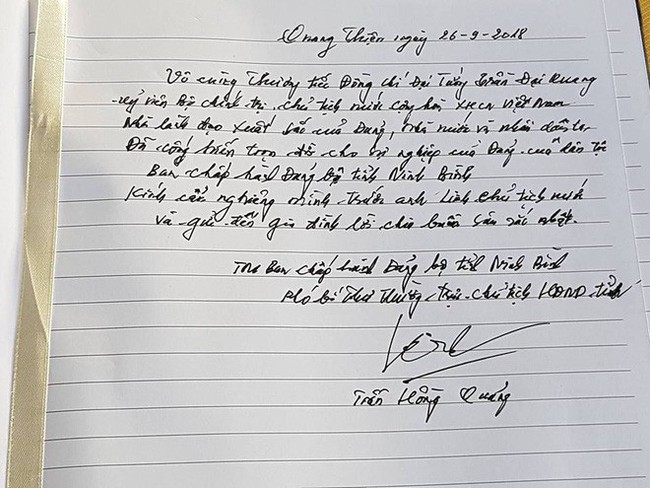 Quang Thiện ngày 26-9-2018
Vô cùng Thương tiếc Đồng chí Đại Tướng Trần Đại Quang
- Uỷ viên Bộ chính trị, chủ tịch nước cộng hoà XHCN Việt Nam
Nhà lãnh đạo xuất sắc của Đảng, nhà nước và nhân dân ta
Đã cống hiến trọn đời cho sự nghiệp của Đảng của dân tộc
Ban chấp hành Đảng bộ tỉnh Ninh Bình
Kính cẩn nghiêng mình trước anh linh chủ tịch nước
và gửi đến gia đình lời chia buồn sâu sắc nhất.
TM Ban chấp hành Đảng bộ tỉnh Ninh Bình
Phó bí Thư Thường trực - chủ tịch HĐND tỉnh
Trần Hồng Quảng